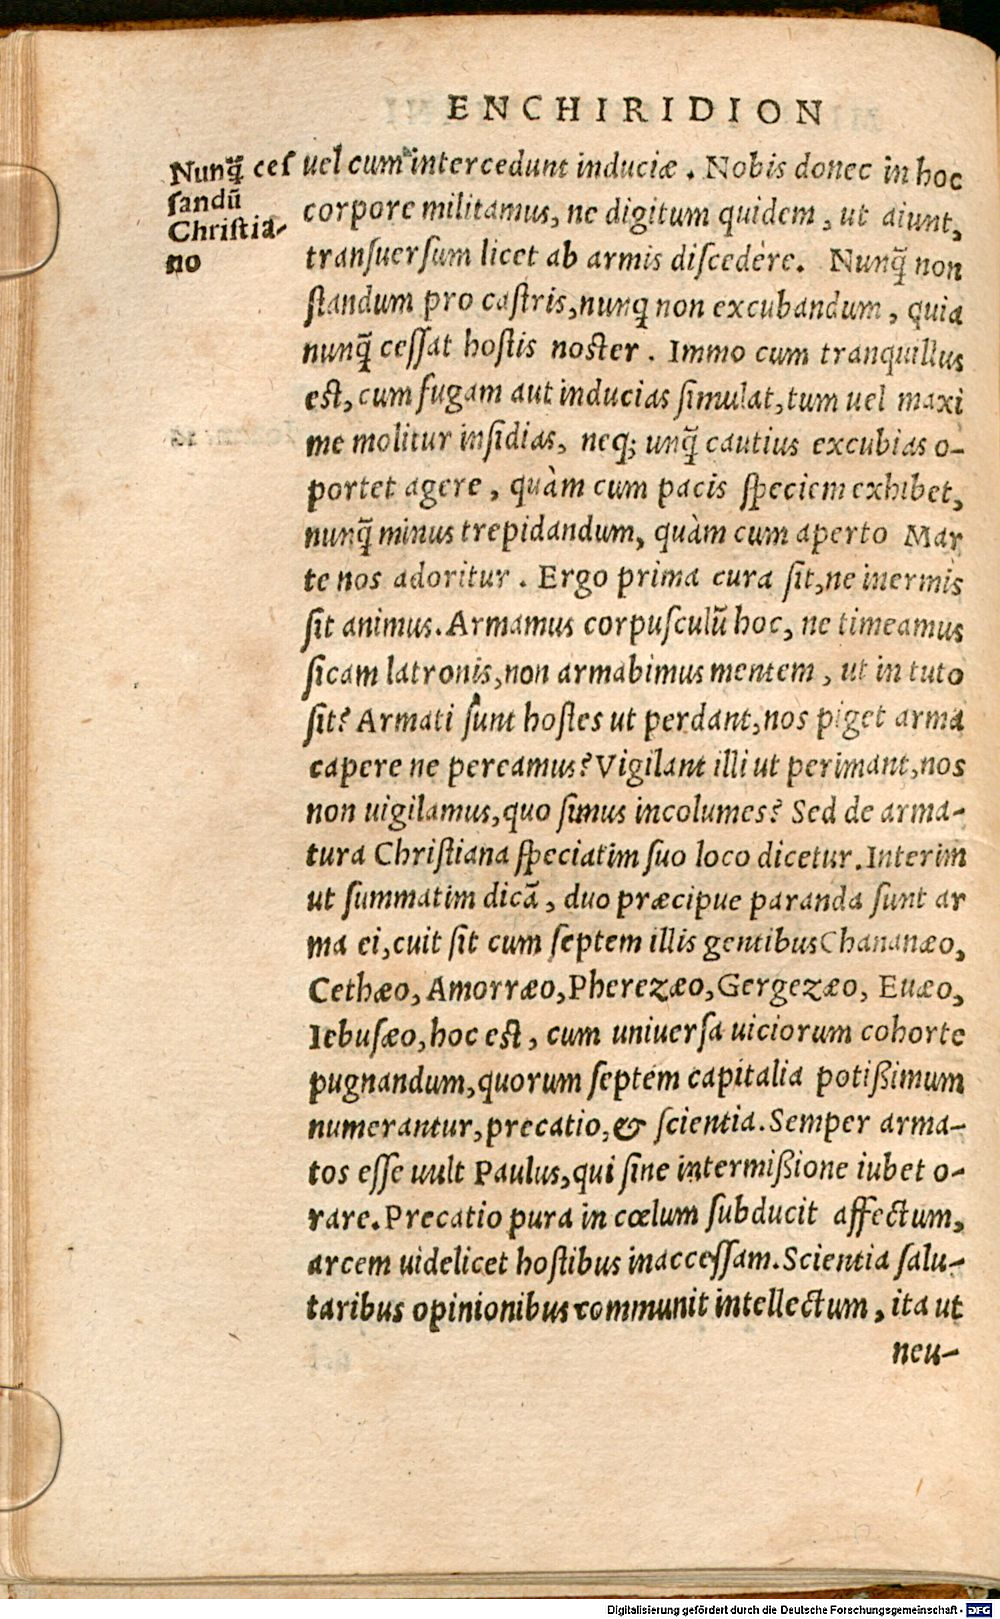 ENCHIRIDION
Nunq̃ ceſ
ſandũ
Chriſtia-
no
uel cum intercedunt induciæ. Nobis donec in hoc
corpore militamus, ne digitum quidem, ut aiunt,
tranſuerſum licet ab armis diſcedere. Nunq̃ non
ſtandum pro caſtris, nunq̃ non excubandum, quia
nunq̃ ceſſat hoſtis noſter. Immo cum tranquillus
eſt, cum fugam aut inducias ſimulat, tum uel maxi
me molitur inſidias, neq; unq̃ cautius excubias o-
portet agere, quàm cum pacis ſpeciem exhibet,
nunq̃ minus trepidandum, quàm cum aperto Mar
te nos adoritur. Ergo prima cura ſit, ne inermis
ſit animus. Armamus corpuſculũ hoc, ne timeamus
ſicam latronis, non armabimus mentem, ut in tuto
ſit? Armati ſunt hoſtes ut perdant, nos piget arma
capere ne pereamus? Vigilant illi ut perimant, nos
non uigilamus, quo ſimus incolumes? Sed de arma-
tura Chriſtiana ſpeciatim ſuo loco dicetur. Interim
ut ſummatim dicã, duo præcipue paranda ſunt ar
ma ei, cuit ſit cum ſeptem illis gentibus Chananæo,
Cethæo, Amorræo, Pherezæo, Gergezæo, Euæo,
Iebuſæo, hoc eſt, cum uniuerſa uiciorum cohorte
pugnandum, quorum ſeptem capitalia potißimum
numerantur, precatio, & ſcientia. Semper arma-
tos eſſe uult Paulus, qui ſine intermißione iubet o-
rare. Precatio pura in cœlum ſubducit affectum,
arcem uidelicet hoſtibus inacceſſam. Scientia ſalu-
taribus opinionibus communit intellectum, ita ut
neu-
Digitalisierung gefördert durch die Deutsche Forschungsgemeinschaft - DFG